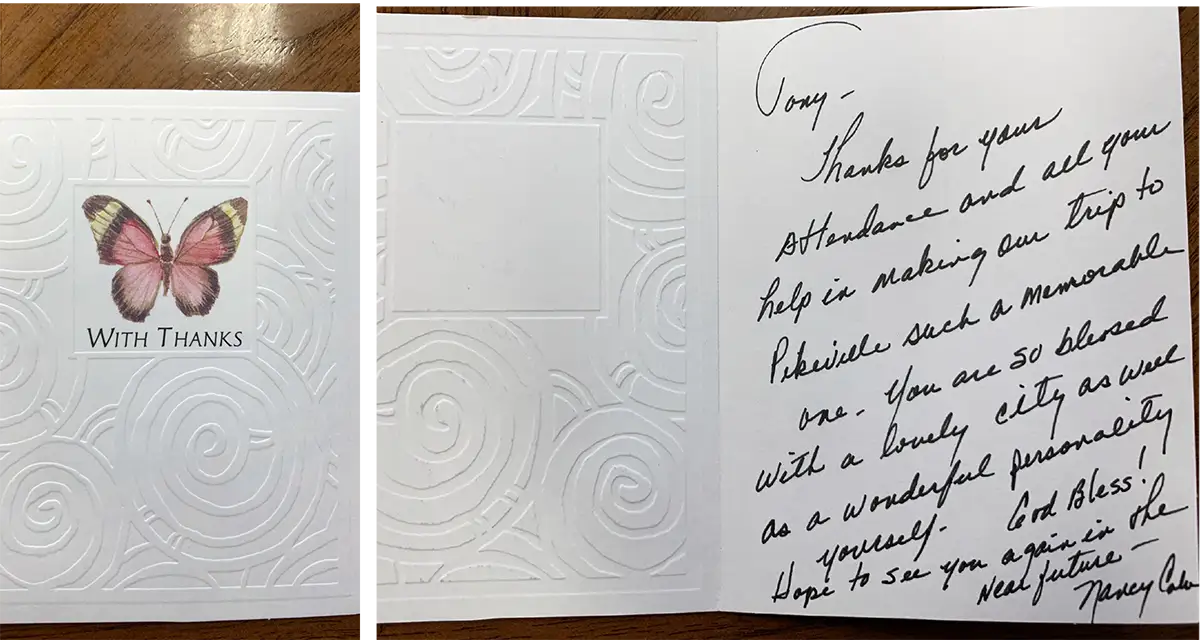 WITH THANKS
Tony -
Thanks for your
Attendance and all your
help in making our trip to
Pikeville such a memorable
one. You are so blessed
with a lovely city as well
as a wonderful personality
yourself. God Bless!
Hope to see you again in the
near future -
Nancy